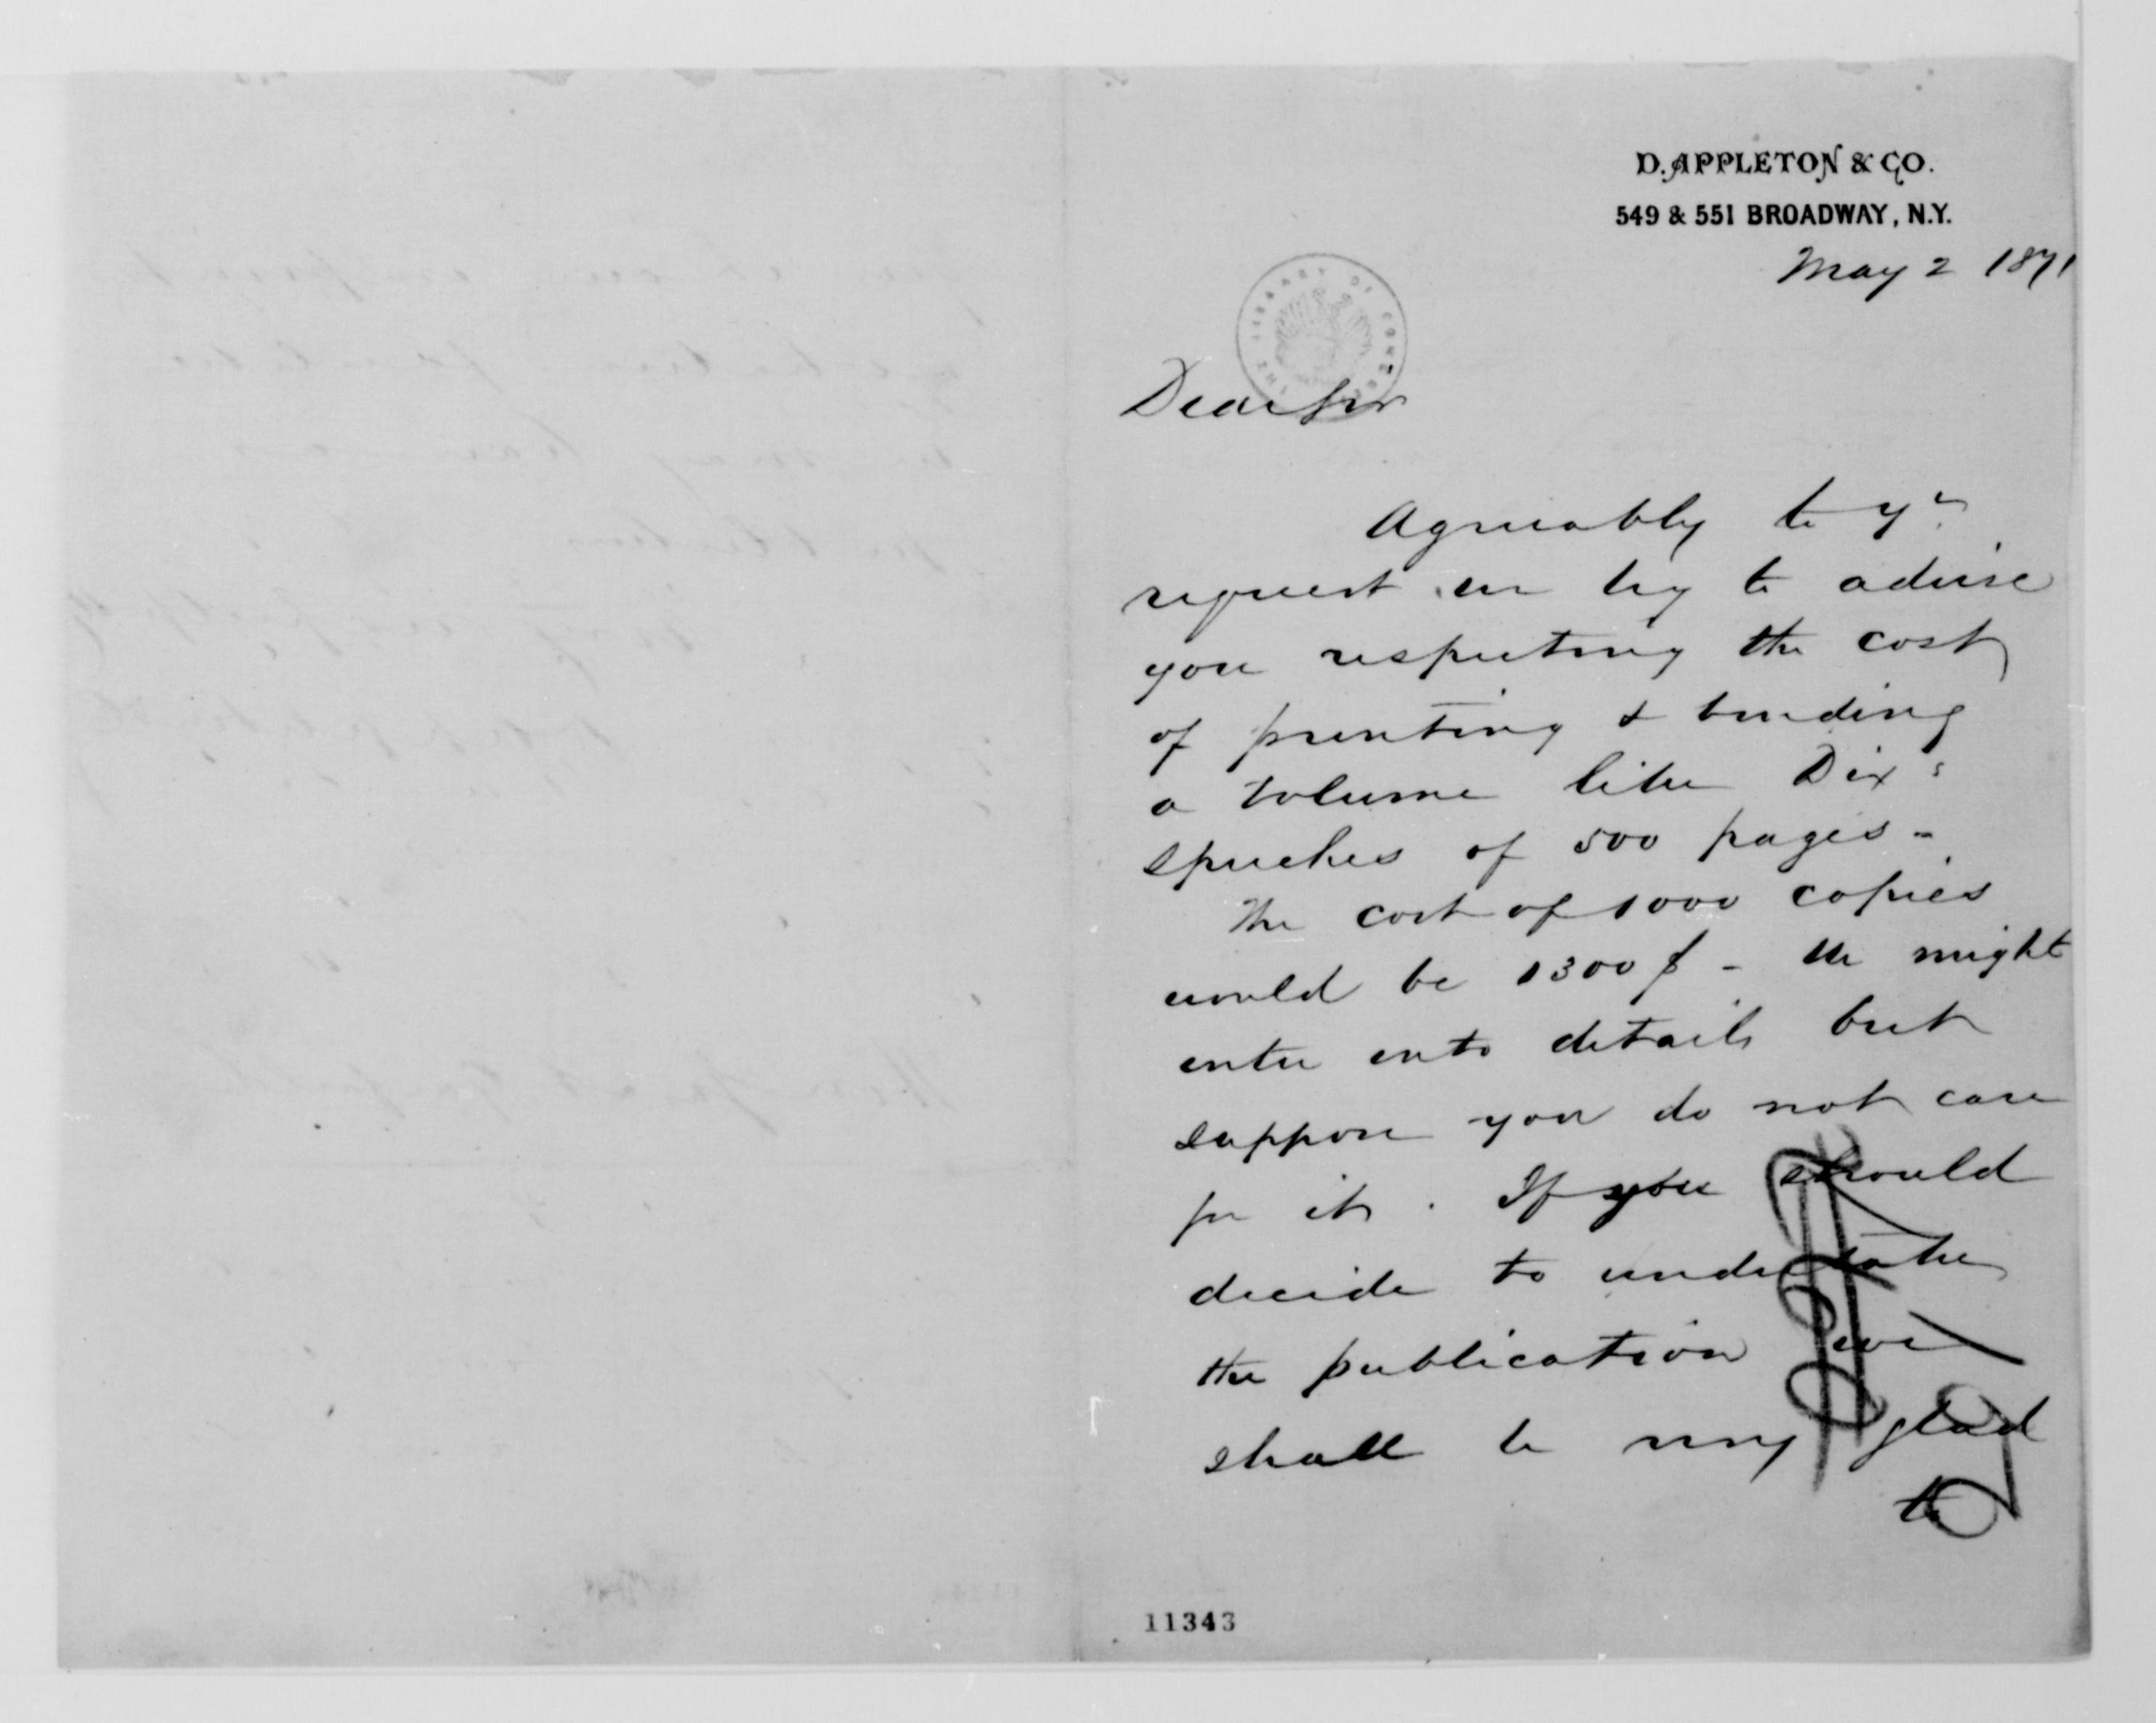 D. APPLETON & CO.
549 & 551 BROADWAY, N.Y.
May 2 1871
THE LIBRARY OF CONGRESS
Dear Sir
Agreeably to yr
request we beg to advise
you respecting the cost
of printing & binding
a volume like Dix's
speeches of 500 pages -
The cost of 1000 copies
would be 1300 $ - We might
enter into details but
suppose you do not care
for it. If you should
decide to undertake
the publication we
shall be very glad
to
11343